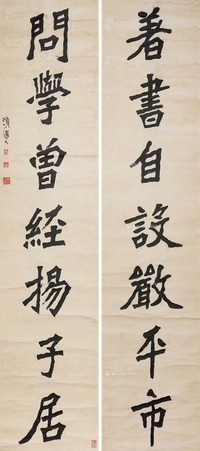 著書自設嚴平市
問學曾經揚子居
清道人